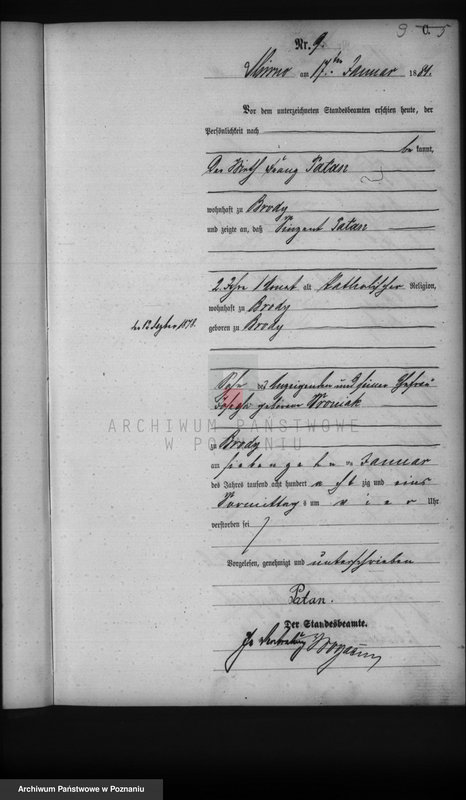 9 C. 5
Nr. 9.
am 17ten Januar 1881.
Vor dem unterzeichneten Standesbeamten erschien heute, der
Persönlichkeit nach
be kannt,
Der Wirth Franz Patan
wohnhaft zu Brody
und zeigte an, daß Vinzent Patan
2 Jahre 1 Monat alt katholischer Religion,
wohnhaft zu Brody
geboren zu Brody
Sohn des Anzeigenden und seiner Ehefrau
geborene Woźniak
ARCHIWUM PAŃSTWOWE
W POZNANIU
zu Brody
am siebenzehnten Januar
des Jahres tausend acht hundert acht zig und eins
Vormittag s um vier Uhr
verstorben sei
Vorgelesen, genehmigt und unterschrieben
Patan.
Der Standesbeamte.
In Vertretung
Archiwum Państwowe w Poznaniu